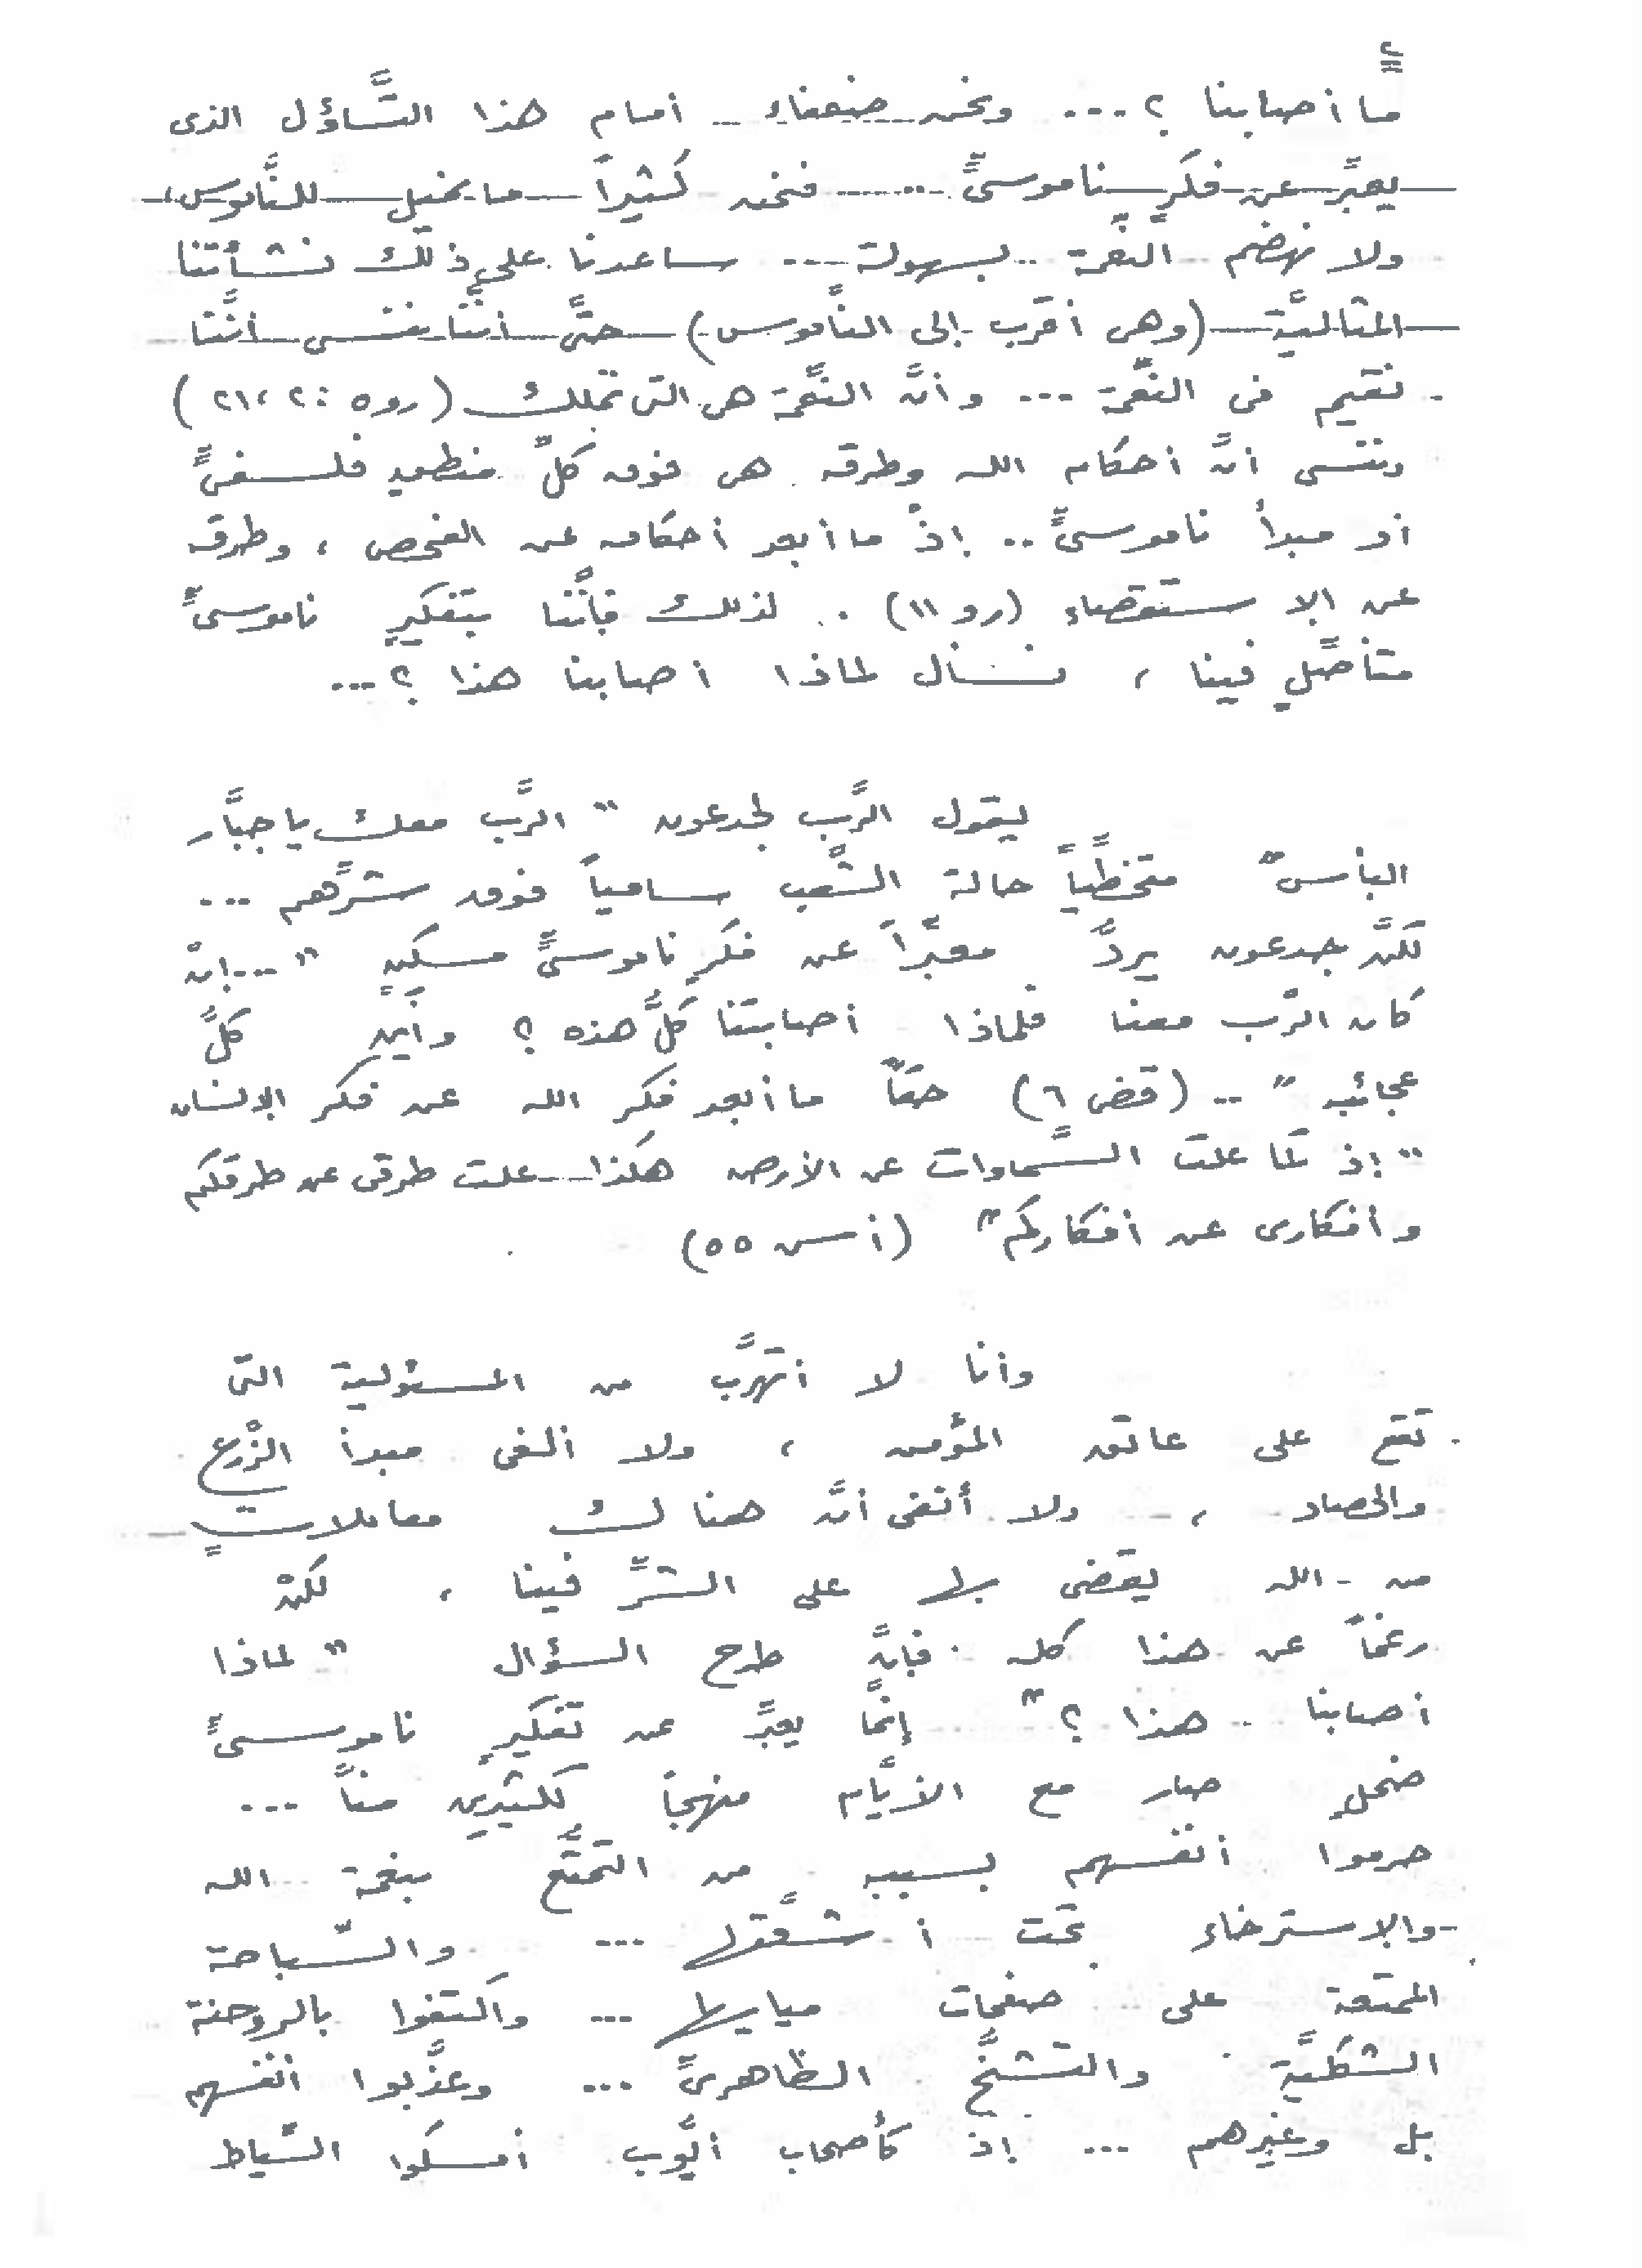 ٢
ما أصابنا ؟ ... ونحن ضعفاء أمام هذا التَّساؤل الذى
يعبَّر عن فكرٍ ناموسىًّ .... فنحن كثيراً ما نميل للنَّاموس،
ولا نهضم النَّعمة .. بسهولة ... ساعدنا على ذلك نشأتنا
المثاليَّة (وهى أقرب إلى النَّاموس) حتَّى أنَّنا ننسى أنَّنا
نقيم فى النَّعمة ... وأنَّ النَّعمة هى التى تملك (رو ٥ : ٢، ٢١)
وننسى أنَّ أحكام الله وطرقه هى فوق كلَّ منطقٍ فلسفىًّ
أو مبدأ ناموسىًّ .. إذْ ما أبعد أحكامه عن الفحص ، وطرقه
عن الاستقصاء (رو ١١) .. لذلك فإنَّنا بتفكيرٍ ناموسىًّ
متأصَّلٍ فينا ، نسأل لماذا أصابنا هذا ؟ ...
يقول الرَّب لجدعون " الرَّب معك يا جبَّار
البأس " متخطَّياً حالة الشَّعب سامياً فوق شرَّهم ...
لكنَّ جدعون يردُّ معبَّراً عن فكرٍ ناموسىًّ مسكينٍ " ... إنْ
كان الرَّب معنا فلماذا أصابتنا كلُّ هذه ؟ وأين كلُّ
عجائبه " .. (قض ٦) حقَّاً ما أبعد فكر الله عن فكر الإنسان
" إذ كما علت السَّماوات عن الأرض هكذا علت طرقى عن طرقكم
وأفكارى عن أفكاركم " (أش ٥٥)
وأنا لا أتهرَّب من المسئولية التى
تقع على عاتق المؤمن ، ولا ألغى مبدأ الزَّرع
والحصاد ، ولا أنفى أنَّ هنالك معاملاتٍ
من الله يقضى بها على الشَّرَّ فينا ، لكنْ
رغماً عن هذا كله فإنَّ طرح السؤال " لماذا
أصابنا هذا ؟ " إنَّما يعبَّر عن تفكيرٍ ناموسىًّ
ضحلٍ صار مع الأيَّام منهجاً لكثيرين منَّا ...
حرموا أنفسهم بسببه من التَّمتُّع بنعمة الله
والإسترخاء تحت أشعَّتها ... والسَّباحة
الممتعة على صفحات مياهها ... واكتفوا بالروحنة
الشكليَّة والتشنُّج الظَّاهرىَّ ... وعذَّبوا أنفسهم
بل وغيرهم ... إذ كأصحاب أيُّوب أمسكوا السَّياط